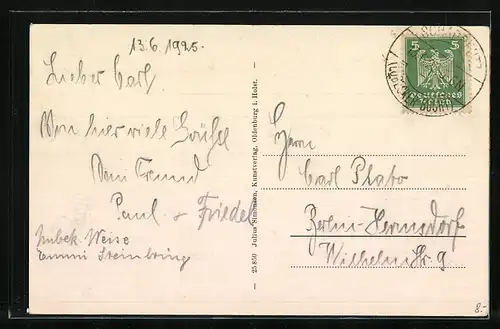 13.6.1925.
Lieber Carl.
Von hier viele Grüße
Dein Freund
Paul & Friedel
Unbek. Weise
Emmi Steinbring
25 850 Julius Simonsen, Kunstverlag, Oldenburg i. Holst.
5 5
Deutsches
Reich
(LÜBECKER BUCHT)
Herrn
Carl Plato
Berlin-Hermsdorf
Wilhelmstr. 9
8.-